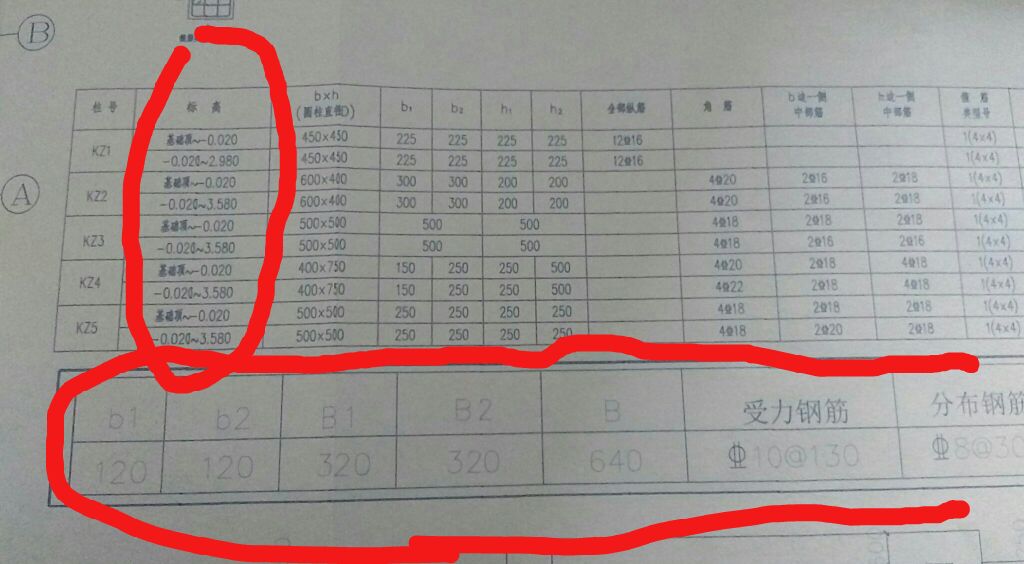 B
A
柱号 标高 b×h (圆柱直径D) b₁ b₂ h₁ h₂ 全部纵筋 角筋 b边一侧中部筋 h边一侧中部筋 箍筋类型号
KZ1 基础顶~-0.020 450×450 225 225 225 225 12Φ16 1(4×4)
-0.020~2.980 450×450 225 225 225 225 12Φ16 1(4×4)
KZ2 基础顶~-0.020 600×400 300 300 200 200 4Φ20 2Φ16 2Φ18 1(4×4)
-0.020~3.580 600×400 300 300 200 200 4Φ20 2Φ16 2Φ18 1(4×4)
KZ3 基础顶~-0.020 500×500 500 500 4Φ18 2Φ18 2Φ18 1(4×4)
-0.020~3.580 500×500 500 500 4Φ18 2Φ16 2Φ16 1(4×4)
KZ4 基础顶~-0.020 400×750 150 250 250 500 4Φ20 2Φ18 4Φ18 1(4×4)
-0.020~3.580 400×750 150 250 250 500 4Φ22 2Φ18 4Φ18 1(4×4)
KZ5 基础顶~-0.020 500×500 250 250 250 250 4Φ18 2Φ18 2Φ18 1(4×4)
-0.020~3.580 500×500 250 250 250 250 4Φ18 2Φ20 2Φ18 1(4×4)
b1 b2 B1 B2 B 受力钢筋 分布钢筋
120 120 320 320 640 Φ10@130 Φ8@30